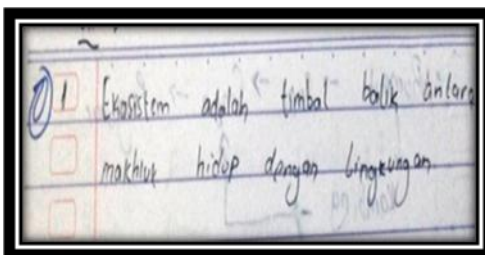 1 Ekosistem adalah timbal balik antara
makhluk hidup dengan lingkungan.